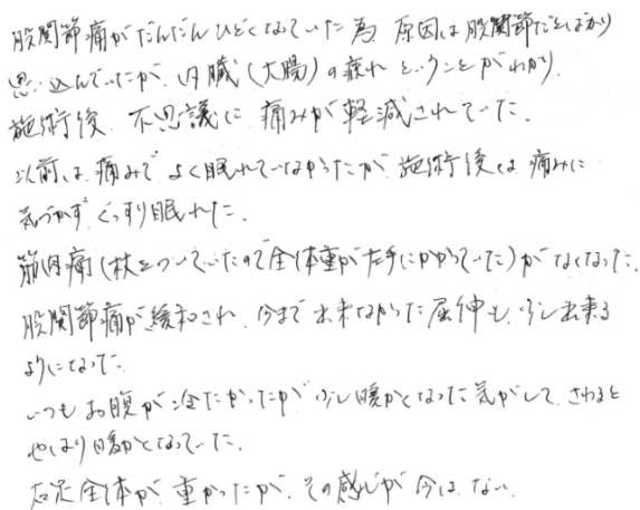 股関節痛がだんだんひどくなっていった為 原因は股関節だとばかり
思い込んでいたが、内臓(大腸)の疲れということがわかり、
施術後、不思議に痛みが軽減されていた。
以前は、痛みでよく眠れていなかったが、施術後は痛みに
気づかず、ぐっすり眠れた。
筋肉痛(杖をついていたので全体重が左手にかかっていた)がなくなった。
股関節痛が緩和され、今まで出来なかった屈伸も、少し出来る
ようになった。
いつもお腹が冷たかったが、少し暖かくなった気がして、さわると
やはり暖かくなっていた。
右足全体が重かったが、その感じが今はない。